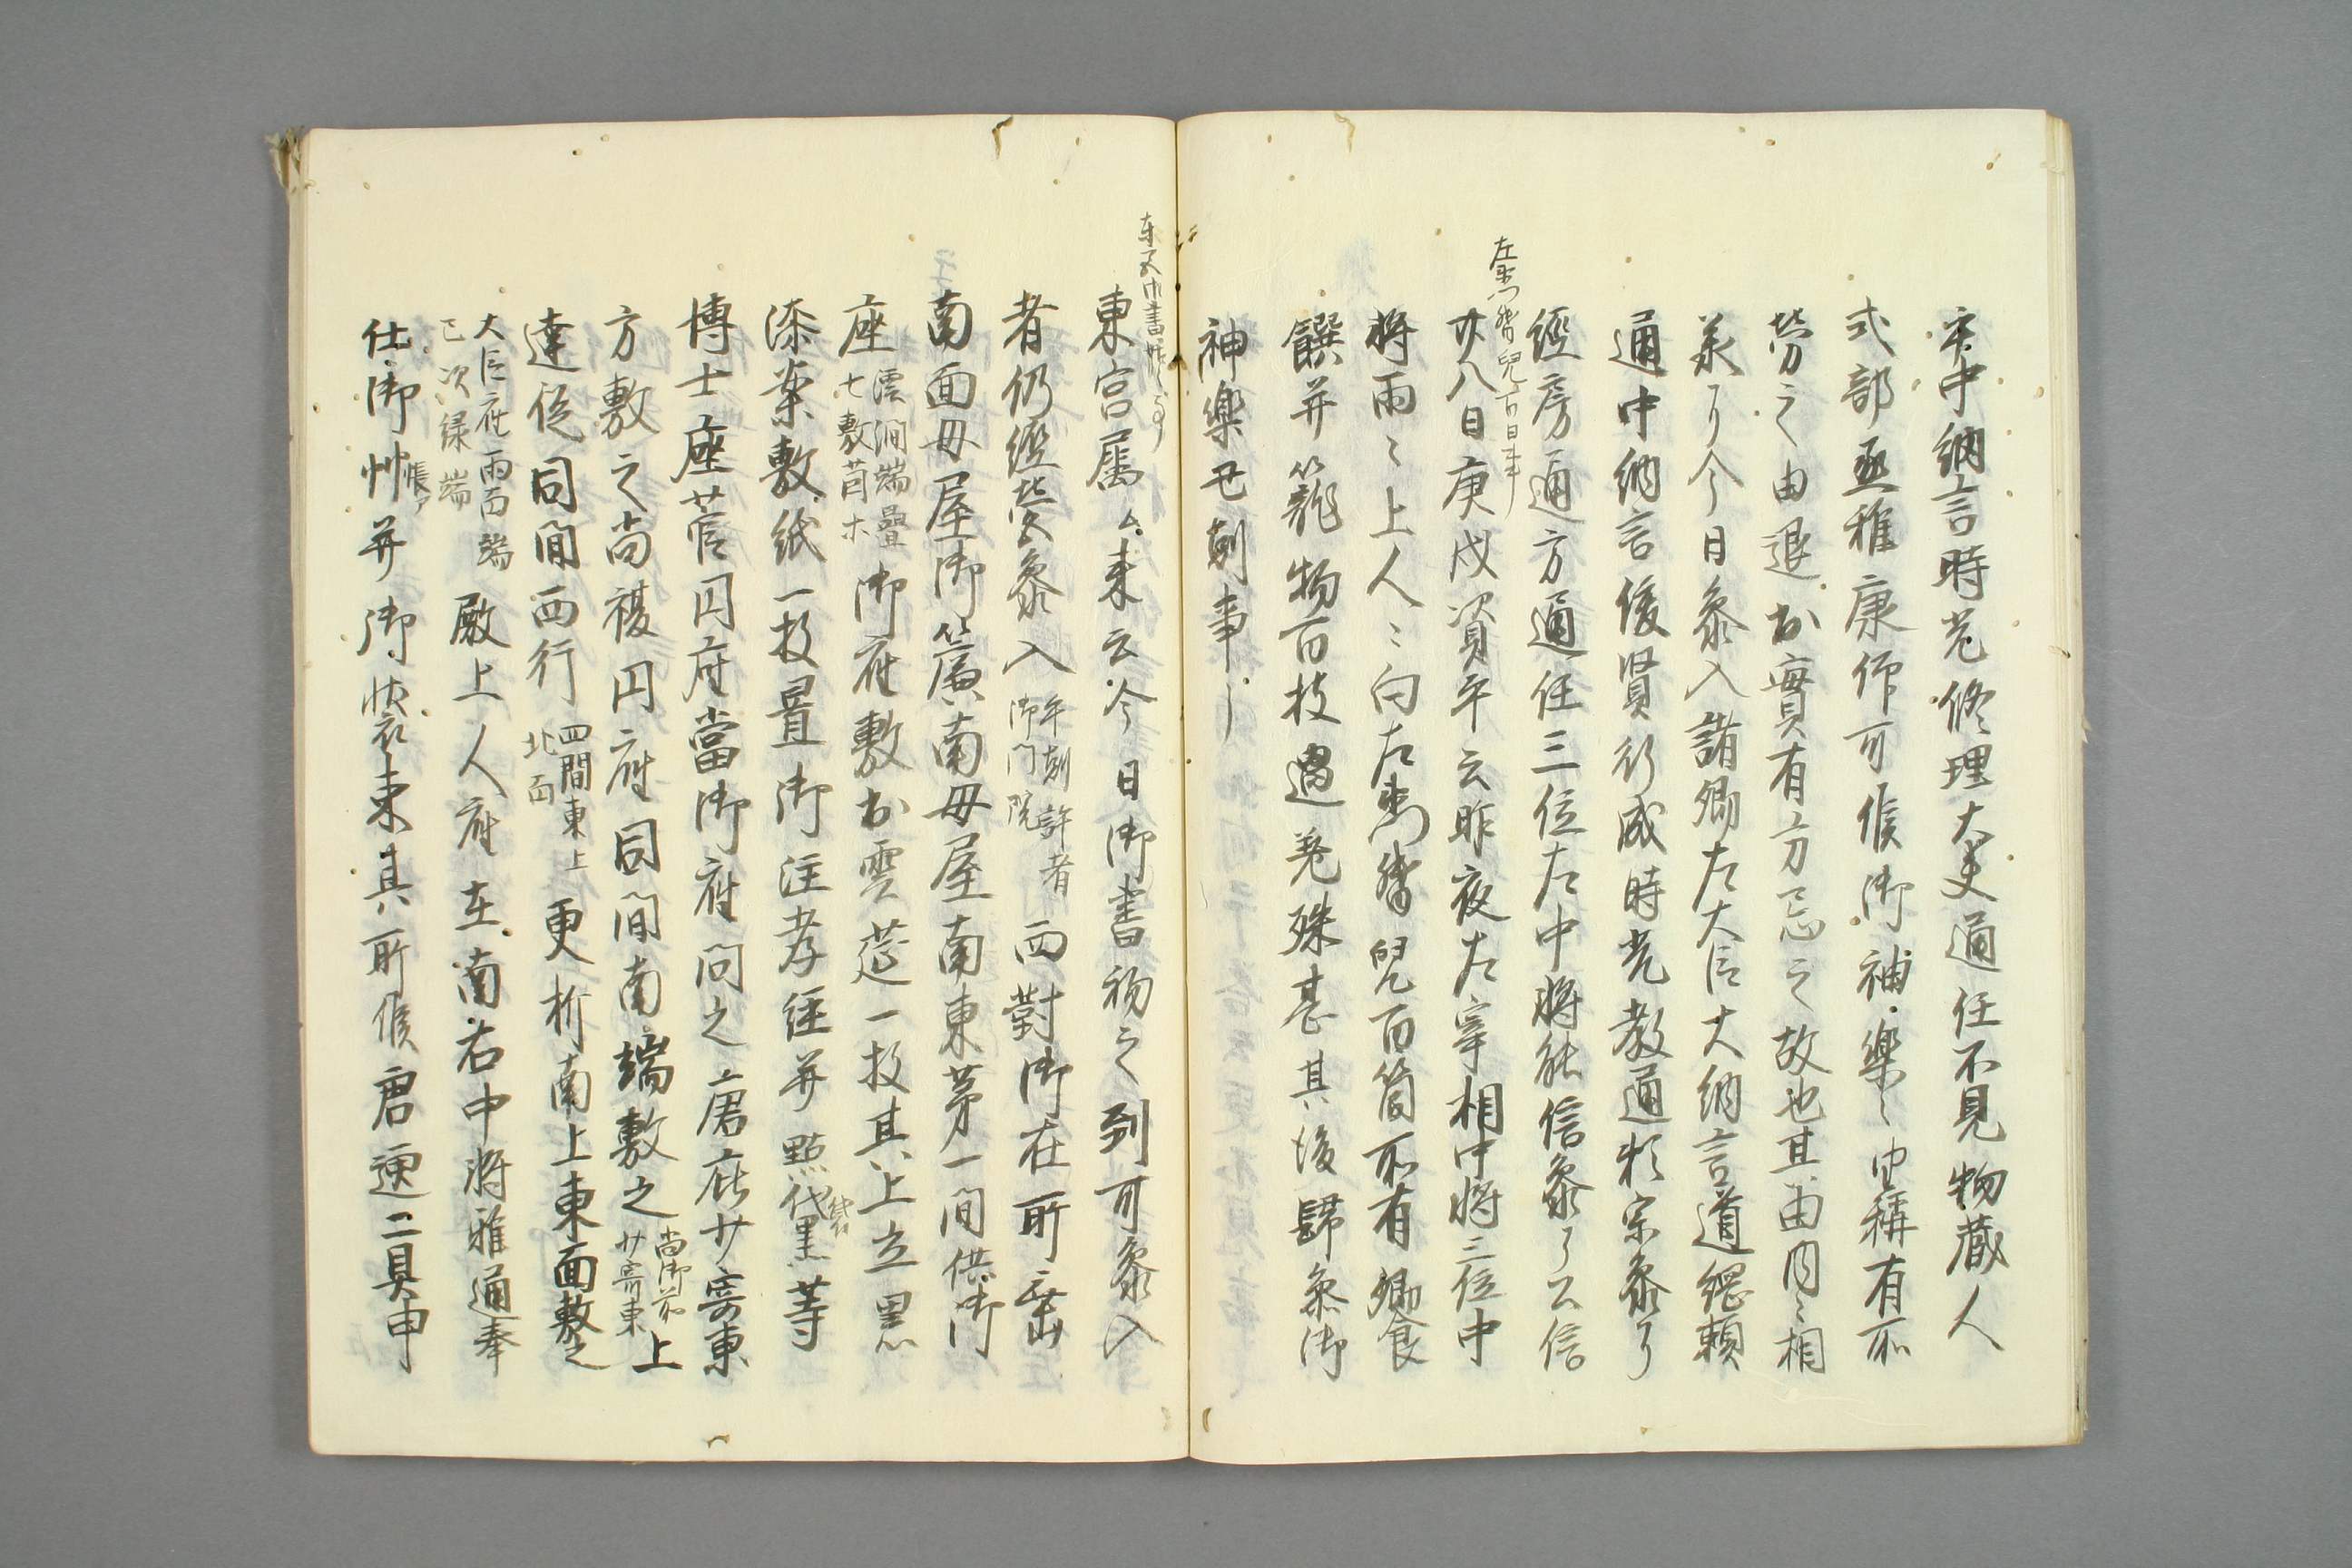 中納言時光修理大夫通任不見物蔵人
式部丞雅康仰可候御神楽之由称有所
労之由退出實有方忌之故也其由同之相
了今日参入諸卿左大臣大納言道綱頼
通中納言俊賢行成時光教通頼宗参了
経房通方通任三位左中将能信参了公信
左衛督児百日事
廿八日庚戌資平云昨夜左宰相中将三位中
将両々上人々向左衛督児百箇所有卿食
饌并籠物百枝過差殊甚其後歸参御
神楽丑刻事了
東宮御書始事
東宮属ム来云今日御書初之刻可参入
者仍經営参入
午刻許者
御門院
西對御在所垂
南面母屋御簾南母屋南東第一間供御
座
雲繝端疊
七敷茵
御座敷出雲莚一枚其上立黒
漆案敷紙一枚置御注孝經并點
等
博士座菅円座當御座間之廂廿寄東
方敷之尚複円座同間南端敷之
尚御前
廿寄東
上
達部同間西行
四間東上
北面
更折南上東面敷之
大臣座両面端
已次緑端
殿上人座在南右中将雅通奉
仕御
帳
并御装束其所候君達二員申